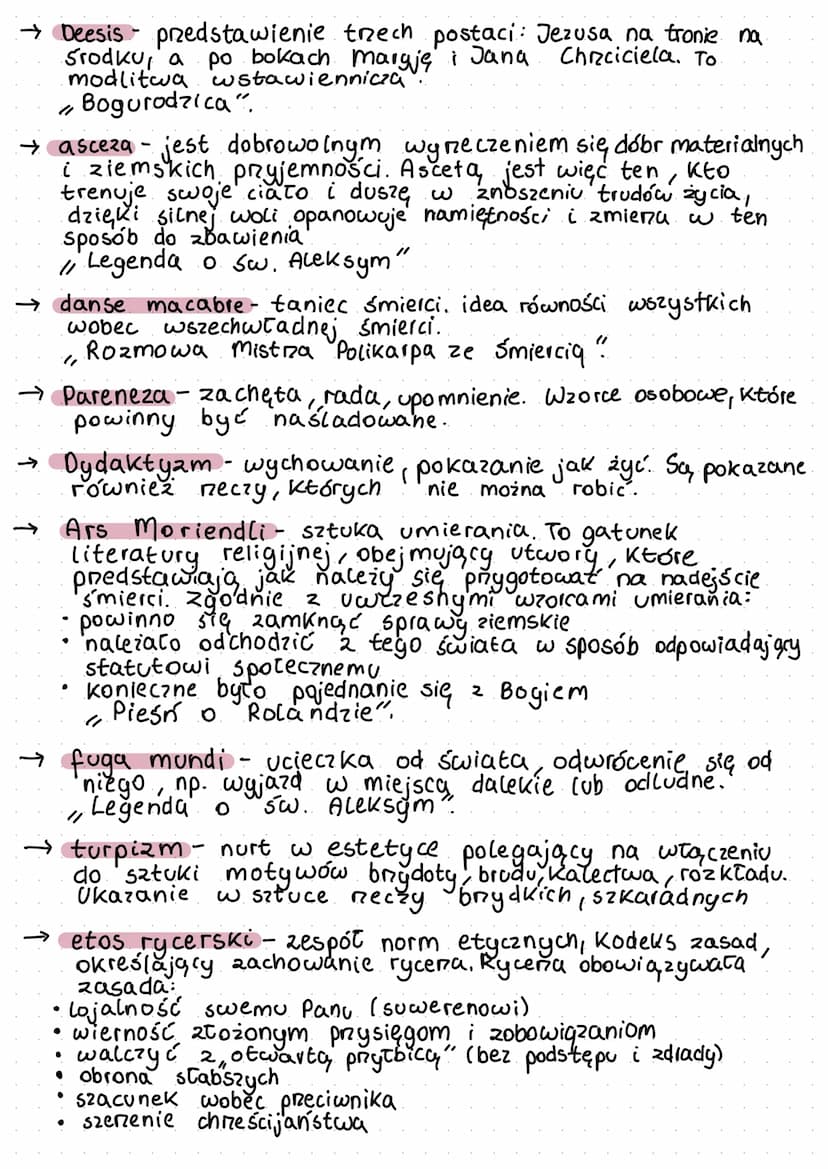 → Deesis - przedstawienie trzech postaci: Jezusa na tronie na
środku, a po bokach Maryję i Jana Chrzciciela. To
modlitwa wstawiennicza.
„Bogurodzica".
→ asceza - jest dobrowolnym wyrzeczeniem się dóbr materialnych
i ziemskich przyjemności. Ascetą jest więc ten, kto
trenuje swoje ciało i duszę w znoszeniu trudów życia,
dzięki silnej woli opanowuje namiętności i zmierza w ten
sposób do zbawienia
„Legenda o św. Aleksym"
→ danse macabre - taniec śmierci. idea równości wszystkich
wobec wszechwładnej śmierci.
„Rozmowa Mistrza Polikarpa ze śmiercią".
→ Pareneza - zachęta, rada, upomnienie. Wzorce osobowe, które
powinny być naśladowane.
→ Dydaktyzm - wychowanie, pokazanie jak żyć. Są pokazane
również rzeczy, których nie można robić.
→ Ars Moriendli - sztuka umierania. To gatunek
literatury religijnej, obejmujący utwory, które
przedstawiają jak należy się przygotować na nadejście
śmierci. Zgodnie z uwczesnymi wzorcami umierania:
• powinno się zamknąć sprawy ziemskie
• należało odchodzić z tego świata w sposób odpowiadający
statutowi społecznemu
• konieczne było pojednanie się z Bogiem
„Pieśń o Rolandzie".
→ fuga mundi - ucieczka od świata, odwrócenie się od
niego, np. wyjazd w miejsca dalekie lub odludne.
„Legenda o św. Aleksym".
→ turpizm - nurt w estetyce polegający na włączeniu
do sztuki motywów brzydoty, brudu, kalectwa, rozkładu.
Ukazanie w sztuce rzeczy brzydkich, szkaradnych
→ etos rycerski - zespół norm etycznych, kodeks zasad,
określający zachowanie rycerza. Rycerza obowiązywała
zasada:
• lojalność swemu Panu (suwerenowi)
• wierność złożonym przysięgom i zobowiązaniom
• walczyć z „otwartą przyłbicą" (bez podstępu i zdrady)
• obrona słabszych
• szacunek wobec przeciwnika
• szerzenie chrześcijaństwa